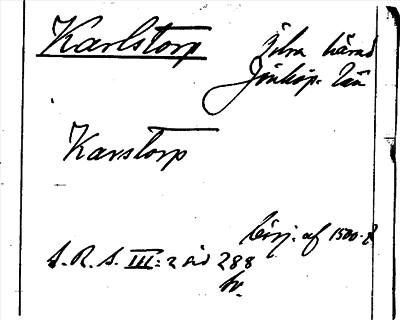 Karlstorp
Östra härad
Jönköp. län
Karstorp
börj. af 1500-t
S.R.S. III:2 sid 288
br.